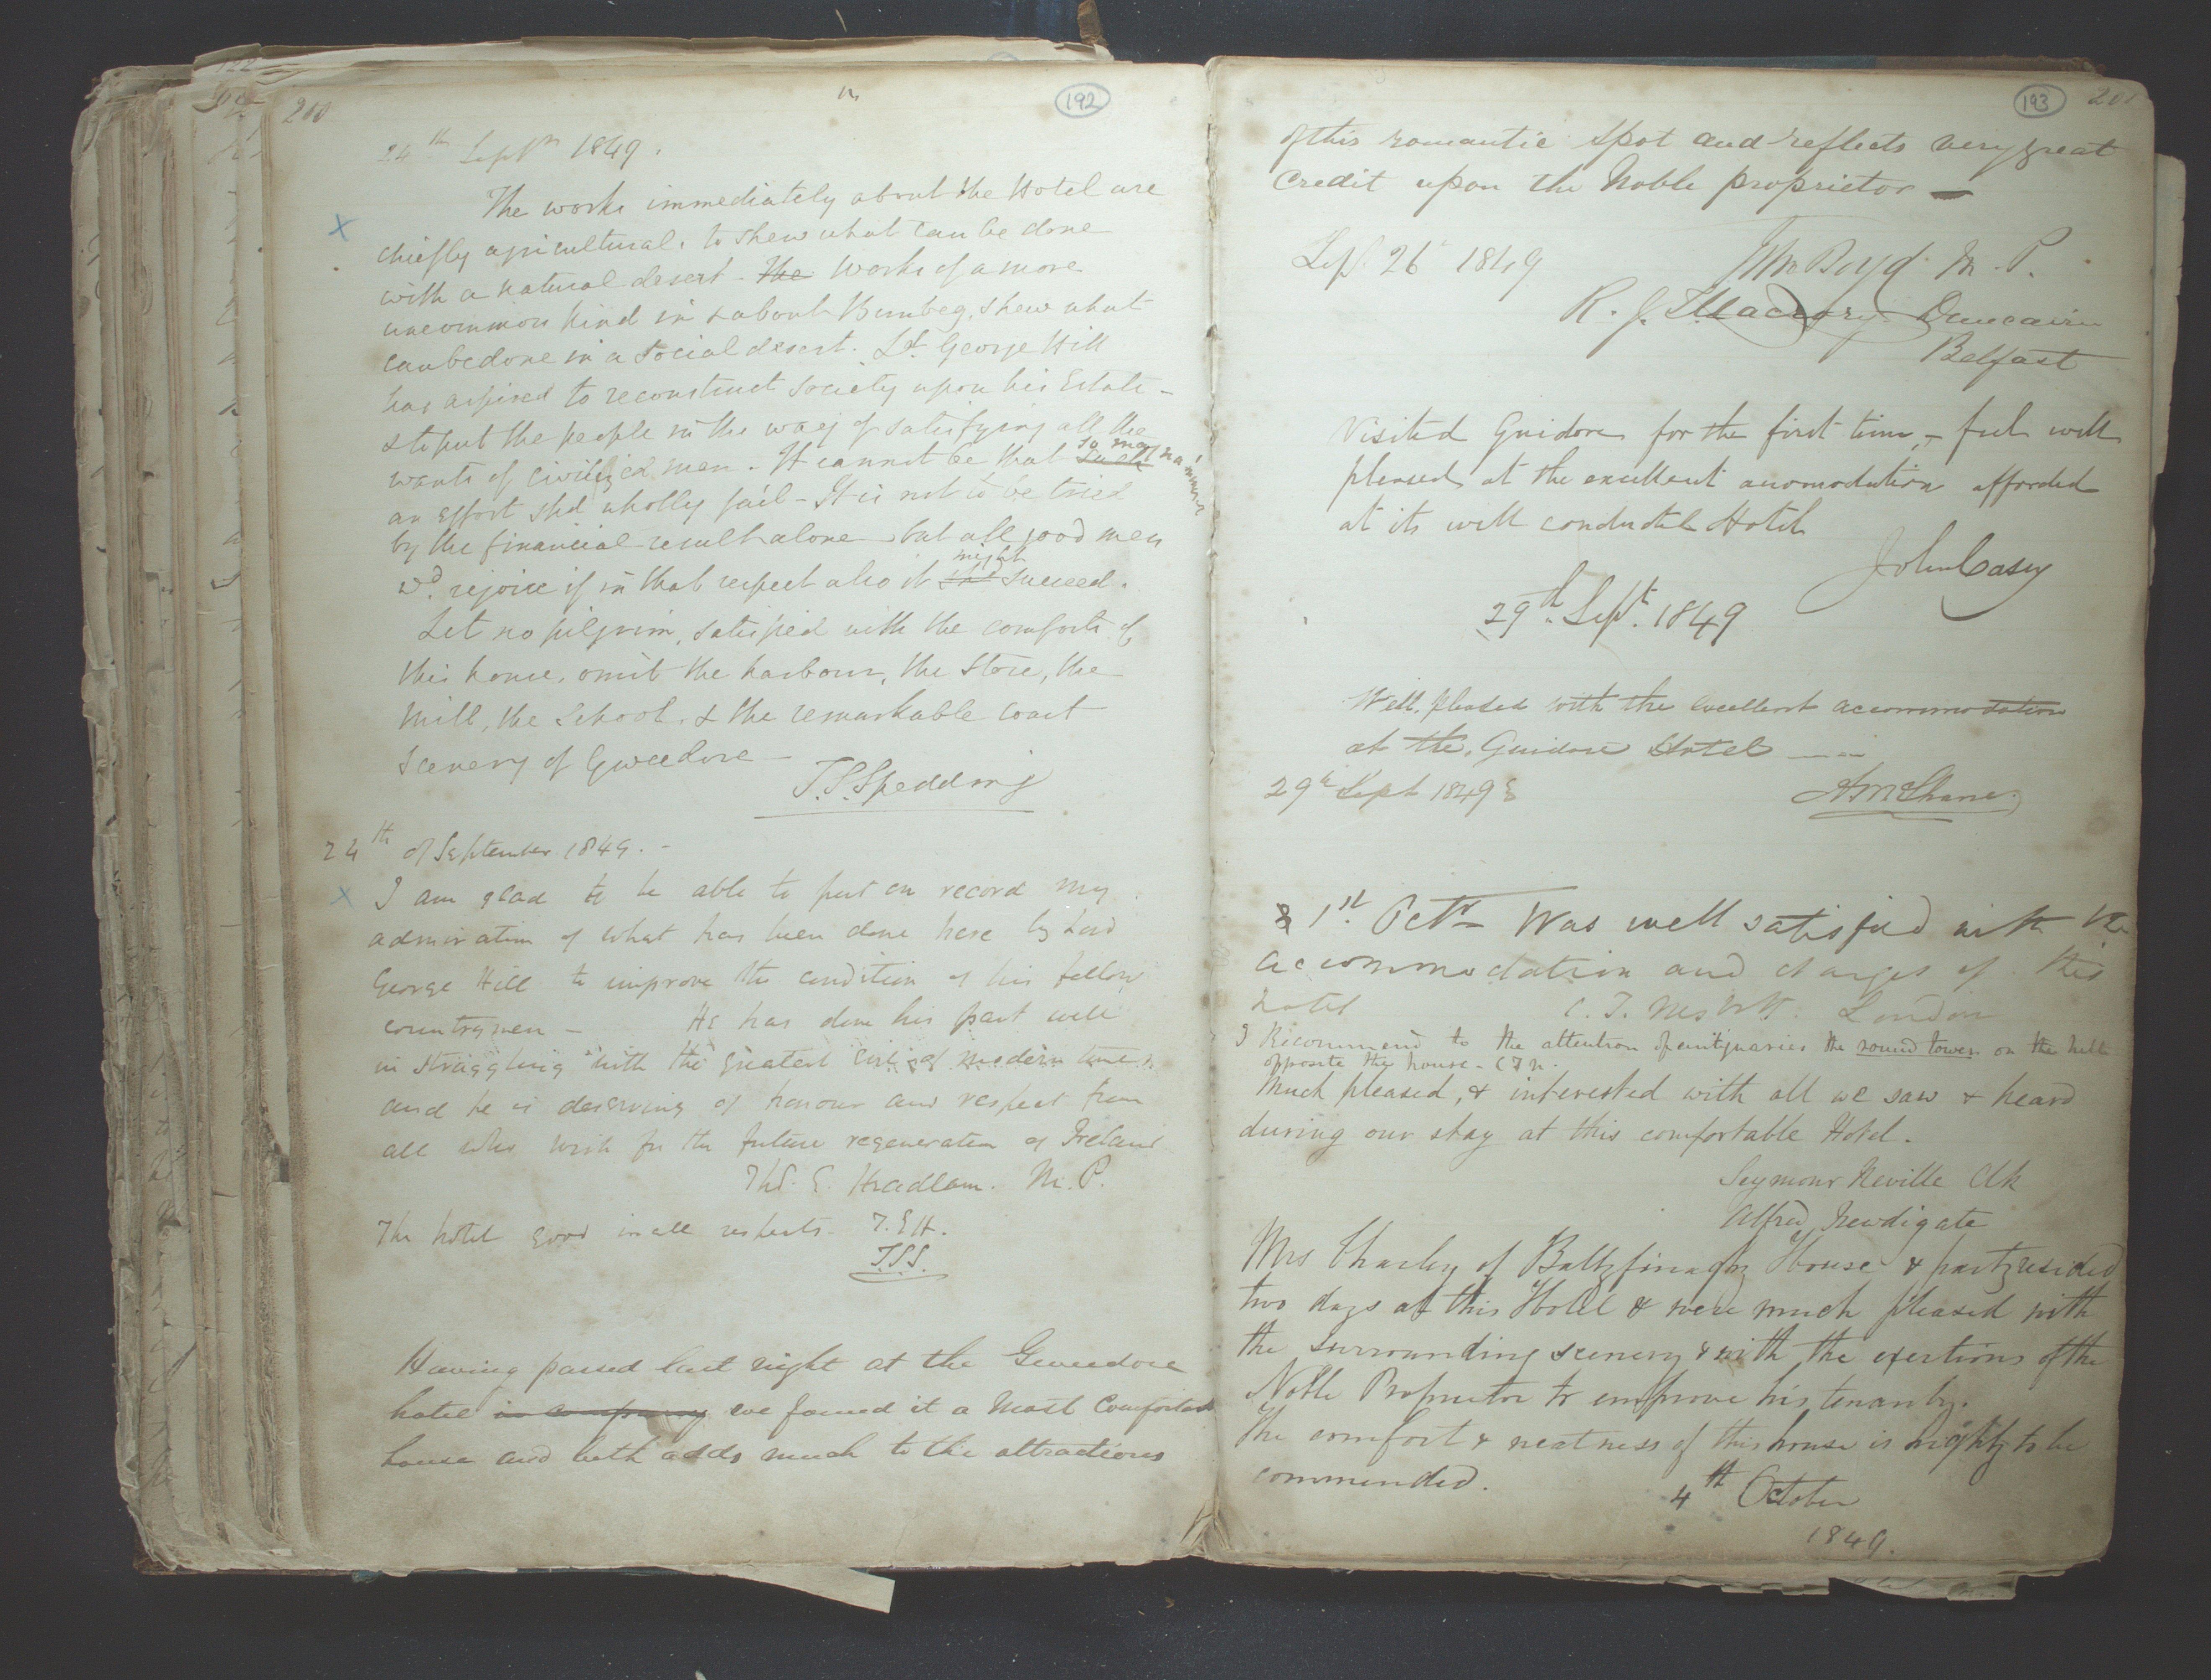 200
192
24th Septr 1849.
The works immediately about the Hotel are
chiefly agricultural. to shew what can be done
with a natural desert - The works of a more
uncommon kind in & about Bunbeg, shew what
can be done in a social desert. Ld. George Hill
has aspired to reconstruct society upon his Estate -
& to put the people in the way of satisfying all the
wants of civilized men. It cannot be that such so magnanimous
an effort shd wholly fail - It is not to be tried
by the financial result alone but all good men
wd. rejoice if in that respect also it shd might succeed.
Let no pilgrim, satisfied with the comforts of
this house, omit the harbour, the Store, the
Mill, the School, & the remarkable coast
scenery of Gweedore -
T.S. Spedding
24th of September 1849. -
I am glad to be able to put on record my
admiration of what has been done here by Lord
George Hill to improve the condition of his fellow
countrymen - He has done his part well
in struggling with the greatest evil of modern times
and he is deserving of honour and respect from
all who wish for the future regeneration of Ireland
Ths. E. Headlam. M.P.
The hotel good in all respects. T.E.H.
T.S.S.
Having passed last night at the Gweedore
hotel in company we found it a Most Comfortable
house and both adds much to the attractions
193
201
of this romantic spot and reflects very great
Credit upon the Noble proprietor -
Sept. 26 1849
Jhn Boyd M.P.
R. J. Macrory Duncairn
Belfast
Visited Guidore for the first time, - feel well
pleased at the excellent accomodation afforded
at its well conducted Hotel
John Casey
29th Sept. 1849
Well pleased with the excellent accommodation
at the Guidore Hotel
29th Sept 1849
A McShane
1st. Octr Was well satisfied with the
accommodation and charges of this
hotel
London
I Recommend to the attention of antiquaries the round tower on the hill
opposite the house - C T N.
Much pleased, & interested with all we saw & heard
during our stay at this comfortable Hotel.
Seymour Neville Clk
Alfred Newdigate
Mrs Charley of Ballyfinaghy House & party resided
two days at this Hotel & were much pleased with
the surrounding scenery & with the exertions of the
Noble Proprietor to improve his tenantry.
The comfort & neatness of this house is highly to be
commended.
4th October
1849.